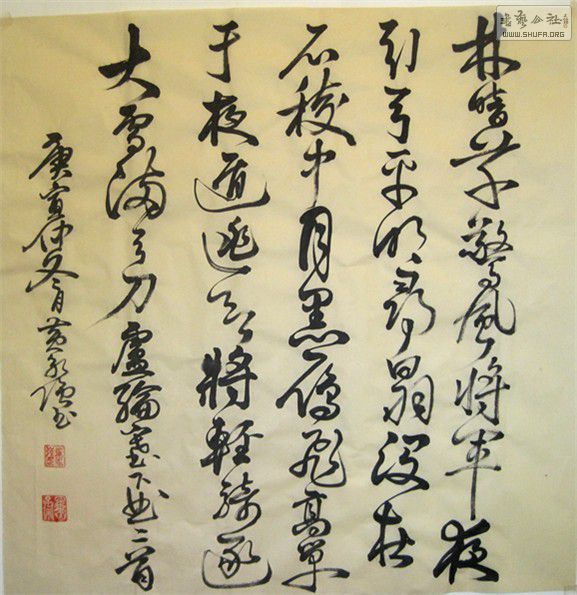 林暗草驚風將軍夜
引弓平明尋白羽没在
石稜中月黑雁飛高單
于夜遁逃欲將輕騎逐
大雪滿弓刀盧綸塞下曲二首
庚寅仲冬月黄永书
書藝公社
WWW.SHUFA.ORG